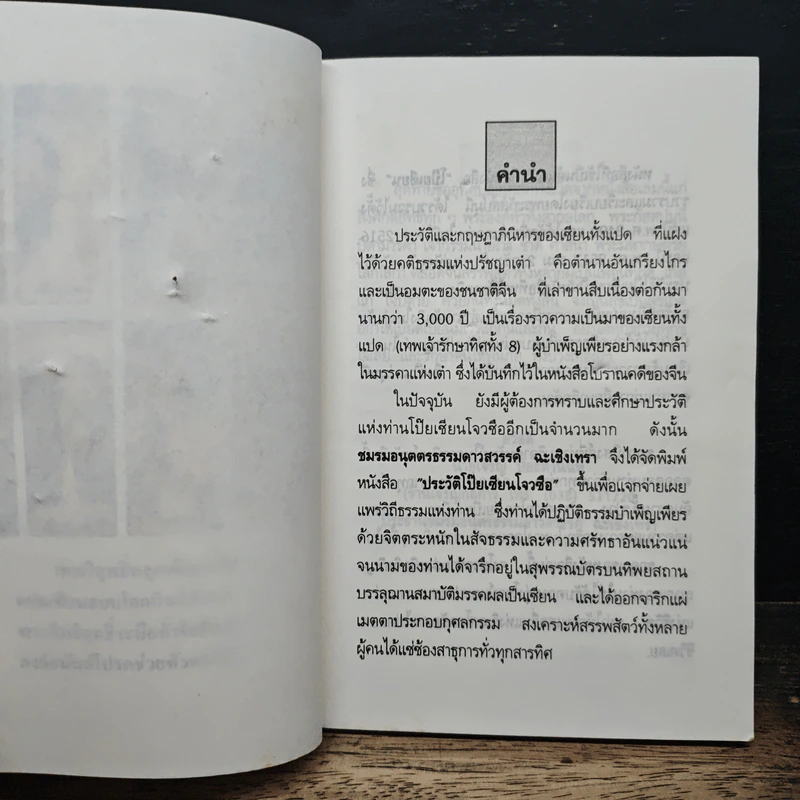 คำนำ
ประวัติและกฤษฎาภินิหารของเซียนทั้งแปด ที่แฝง
ไว้ด้วยคติธรรมแห่งปรัชญาเต๋า คือตำนานอันเกรียงไกร
และเป็นอมตะของชนชาติจีน ที่เล่าขานสืบเนื่องต่อกันมา
นานกว่า 3,000 ปี เป็นเรื่องราวความเป็นมาของเซียนทั้ง
แปด (เทพเจ้ารักษาทิศทั้ง 8) ผู้บำเพ็ญเพียรอย่างแรงกล้า
ในมรรคาแห่งเต๋า ซึ่งได้บันทึกไว้ในหนังสือโบราณคดีของจีน
ในปัจจุบัน ยังมีผู้ต้องการทราบและศึกษาประวัติ
แห่งท่านโป๊ยเซียนโจวซืออีกเป็นจำนวนมาก ดังนั้น
ชมรมอนุตตรธรรมดาวสวรรค์ ฉะเชิงเทรา จึงได้จัดพิมพ์
หนังสือ "ประวัติโป๊ยเซียนโจวซือ" ขึ้นเพื่อแจกจ่ายเผย
แพร่วิถีธรรมแห่งท่าน ซึ่งท่านได้ปฏิบัติธรรมบำเพ็ญเพียร
ด้วยจิตตระหนักในสัจธรรมและความศรัทธาอันแน่วแน่
จนนามของท่านได้จารึกอยู่ในสุพรรณบัตรบนทิพยสถาน
บรรลุฌานสมาบัติมรรคผลเป็นเซียน และได้ออกจาริกแผ่
เมตตาประกอบกุศลกรรม สงเคราะห์สรรพสัตว์ทั้งหลาย
ผู้คนได้แซ่ซ้องสาธุการทั่วทุกสารทิศ